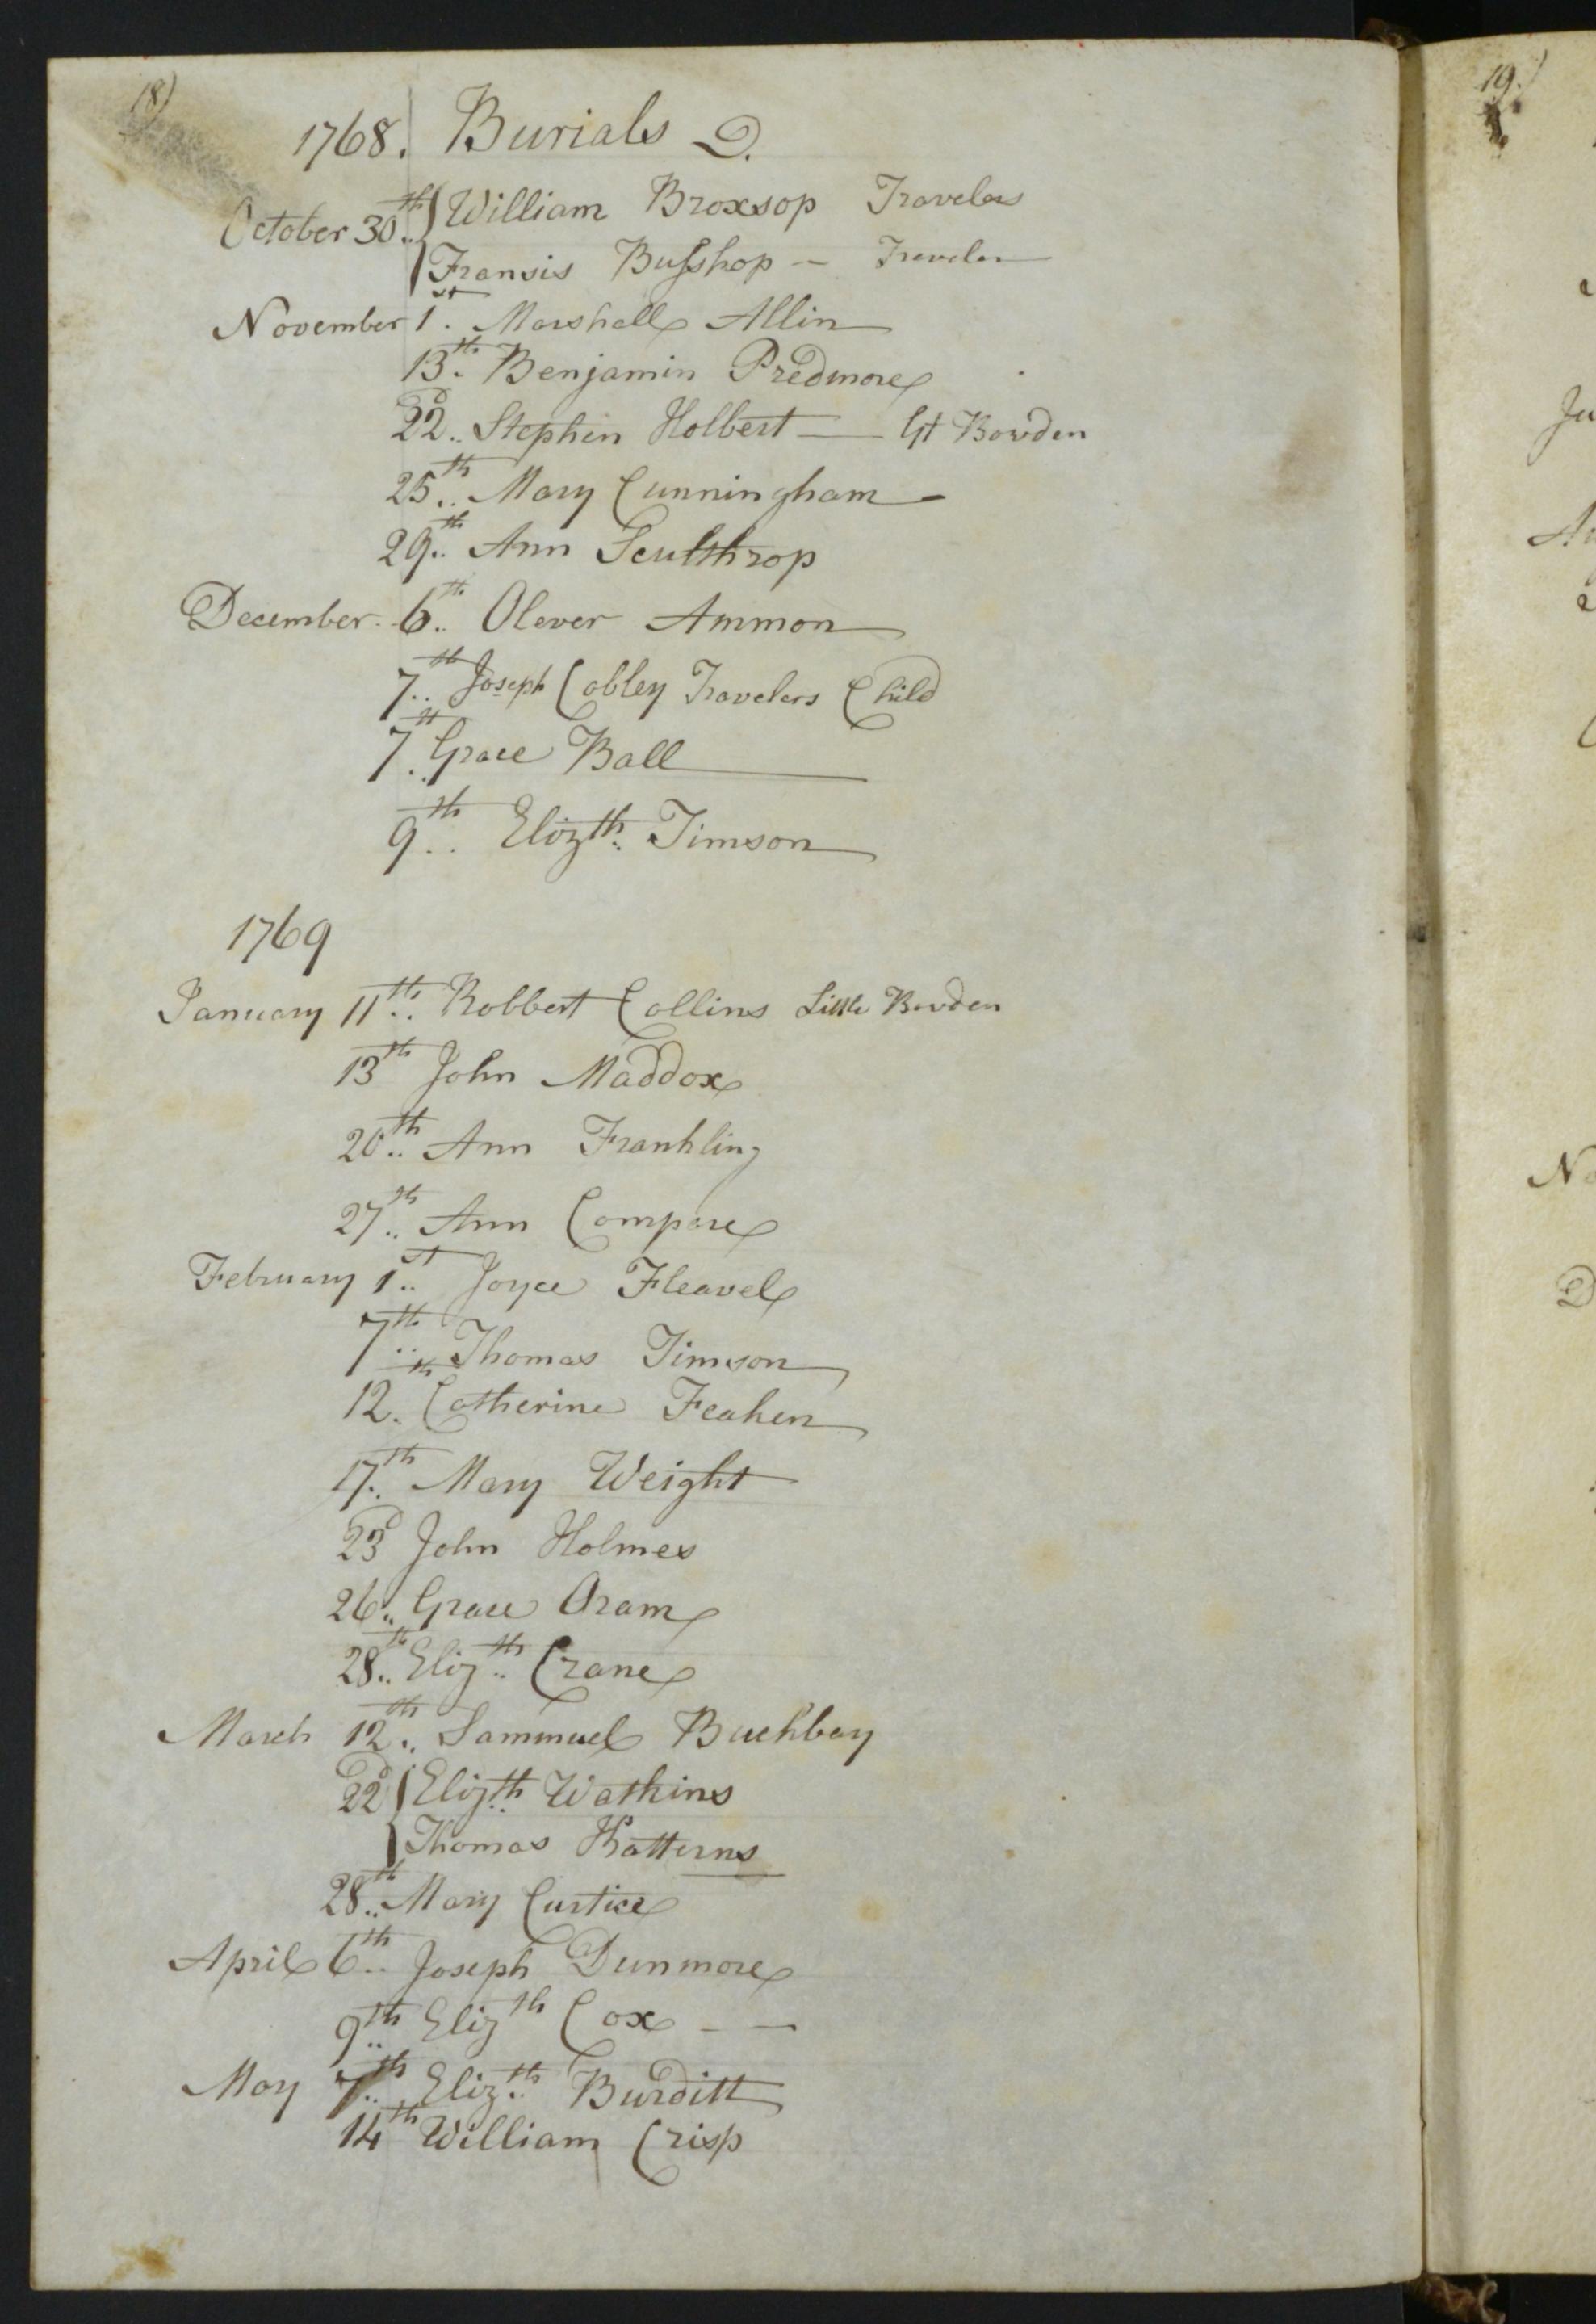 18)
1768. Burials D.
October 30th.. { William Broxsop Travelers
{ Fransis Buſshop — Traveler
November 1st. Marshall Allin
13th. Benjamin Predmore
22d.. Stephen Holbert — Gt Bowden
25th.. Mary Cunningham
29th.. Ann Sculthrop
December 6th.. Olever Ammon
7th.. Joseph Cobley Travelers Child
7th.. Grace Ball
9th.. Elizth. Timson
1769
January 11th.. Robbert Collins Little Bowden
13th John Maddox
20th.. Ann Frankling
27th.. Ann Compare
February 1st.. Joyce Fleavel
7th.. Thomas Timson
12th. Catherine Feaken
17th.. Mary Weight
23d John Holmes
26.. Grace Oram
28th.. Elizth.. Crane
March 12th.. Sammuel Buckbay
22d { Elizth.. Watkins
{ Thomas Katterns
28th.. Mary Curtice
April 6th.. Joseph Dunmore
9th.. Elizth Cox — —
May 7th.. Elizth.. Burditt
14th William Crisp
19.)
Ju
No
D